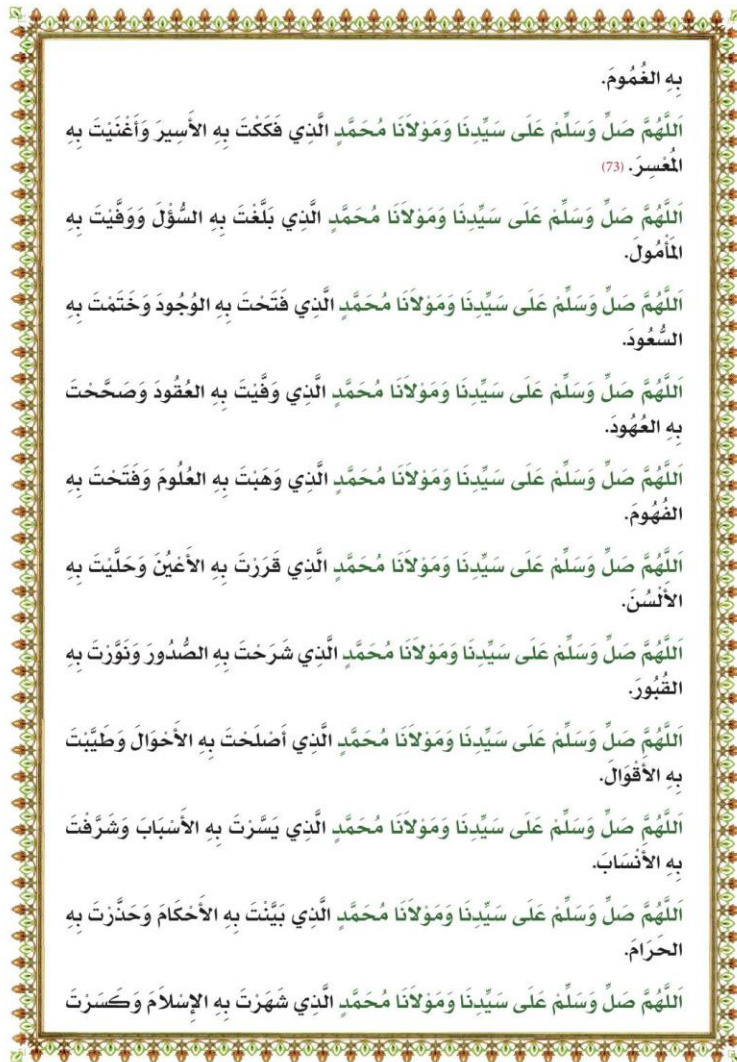 بِهِ الغُمُومَ.
اَللَّهُمَّ صَلِّ وَسَلِّمْ عَلَى سَيِّدِنَا وَمَوْلاَنَا مُحَمَّدٍ الَّذِي فَكَكْتَ بِهِ الأَسِيرَ وَأَغْنَيْتَ بِهِ
المُعْسِرَ. (73)
اَللَّهُمَّ صَلِّ وَسَلِّمْ عَلَى سَيِّدِنَا وَمَوْلاَنَا مُحَمَّدٍ الَّذِي بَلَّغْتَ بِهِ السُّؤْلَ وَوَفَّيْتَ بِهِ
المَأْمُولَ.
اَللَّهُمَّ صَلِّ وَسَلِّمْ عَلَى سَيِّدِنَا وَمَوْلاَنَا مُحَمَّدٍ الَّذِي فَتَحْتَ بِهِ الوُجُودَ وَخَتَمْتَ بِهِ
السُّعُودَ.
اَللَّهُمَّ صَلِّ وَسَلِّمْ عَلَى سَيِّدِنَا وَمَوْلاَنَا مُحَمَّدٍ الَّذِي وَفَّيْتَ بِهِ العُقُودَ وَصَحَّحْتَ
بِهِ العُهُودَ.
اَللَّهُمَّ صَلِّ وَسَلِّمْ عَلَى سَيِّدِنَا وَمَوْلاَنَا مُحَمَّدٍ الَّذِي وَهَبْتَ بِهِ العُلُومَ وَفَتَحْتَ بِهِ
الفُهُومَ.
اَللَّهُمَّ صَلِّ وَسَلِّمْ عَلَى سَيِّدِنَا وَمَوْلاَنَا مُحَمَّدٍ الَّذِي قَرَرْتَ بِهِ الأَعْيُنَ وَحَلَّيْتَ بِهِ
الأَلْسُنَ.
اَللَّهُمَّ صَلِّ وَسَلِّمْ عَلَى سَيِّدِنَا وَمَوْلاَنَا مُحَمَّدٍ الَّذِي شَرَحْتَ بِهِ الصُّدُورَ وَنَوَّرْتَ بِهِ
القُبُورَ.
اَللَّهُمَّ صَلِّ وَسَلِّمْ عَلَى سَيِّدِنَا وَمَوْلاَنَا مُحَمَّدٍ الَّذِي أَصْلَحْتَ بِهِ الأَحْوَالَ وَطَيَّبْتَ
بِهِ الأَقْوَالَ.
اَللَّهُمَّ صَلِّ وَسَلِّمْ عَلَى سَيِّدِنَا وَمَوْلاَنَا مُحَمَّدٍ الَّذِي يَسَّرْتَ بِهِ الأَسْبَابَ وَشَرَّفْتَ
بِهِ الأَنْسَابَ.
اَللَّهُمَّ صَلِّ وَسَلِّمْ عَلَى سَيِّدِنَا وَمَوْلاَنَا مُحَمَّدٍ الَّذِي بَيَّنْتَ بِهِ الأَحْكَامَ وَحَذَّرْتَ بِهِ
الحَرَامَ.
اَللَّهُمَّ صَلِّ وَسَلِّمْ عَلَى سَيِّدِنَا وَمَوْلاَنَا مُحَمَّدٍ الَّذِي شَهَرْتَ بِهِ الإِسْلاَمَ وَكَسَرْتَ